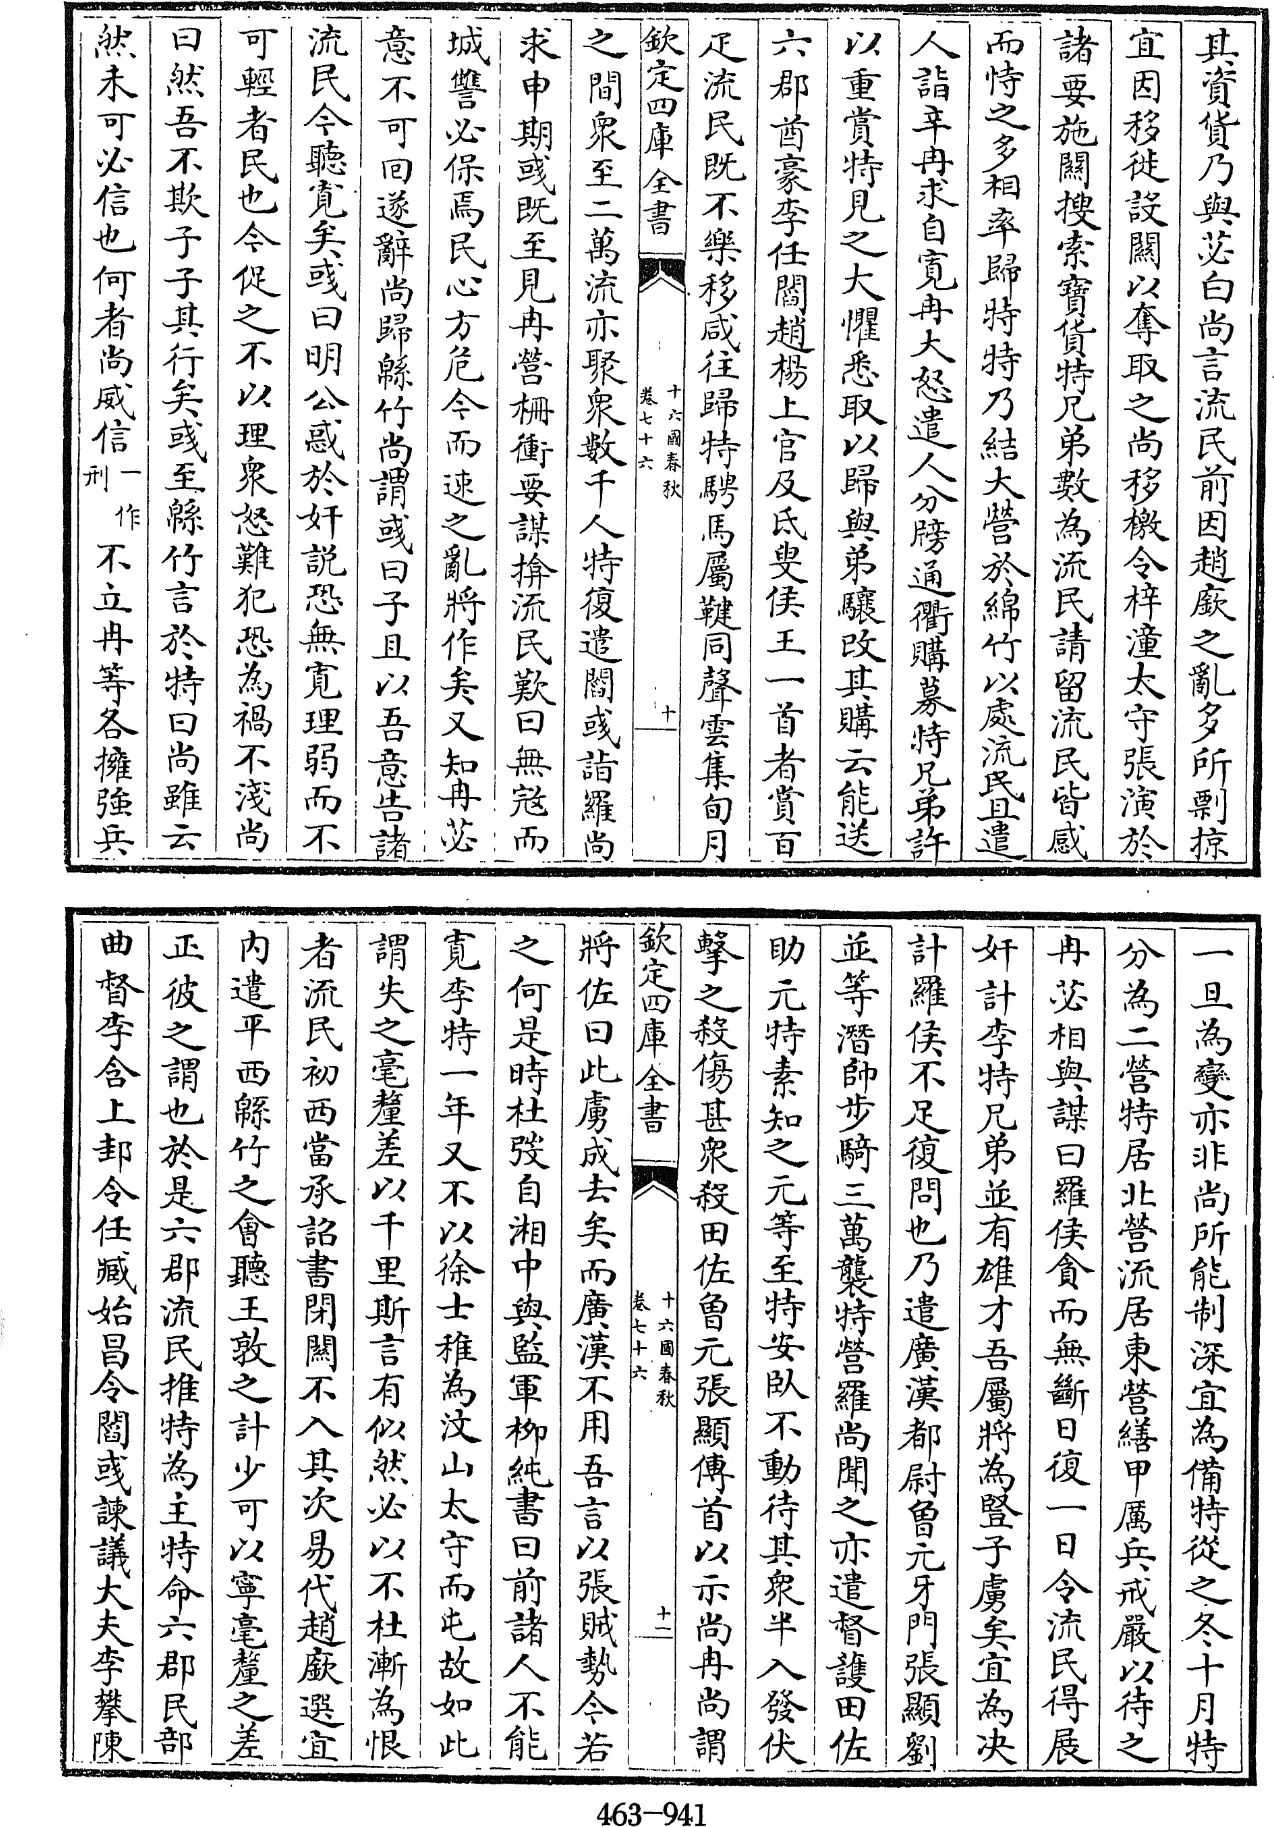 其資貨乃與苾白尚言流民前因趙廞之亂多所剽掠
宜因移徙設關以奪取之尚移檄令梓潼太守張演於
諸要施關搜索寶貨特兄弟數為流民請留流民皆感
而恃之多相率歸特特乃結大營於綿竹以處流民且遣
人詣辛冉求自寛冉大怒遣人分牓通衢購募特兄弟許
以重賞特見之大懼悉取以歸與弟驤改其購云能送
六郡酋豪李任閻趙楊上官及氐叟侯王一首者賞百
疋流民既不樂移咸往歸特騁馬屬鞬同聲雲集旬月
欽定四庫全書
十六國春秋
卷七十六
十
之間衆至二萬流亦聚衆數千人特復遣閻彧詣羅尚
求申期彧既至見冉營柵衝要謀揜流民歎曰無冦而
城讐必保焉民心方危今而速之亂將作矣又知冉苾
意不可回遂辭尚歸緜竹尚謂彧曰子且以吾意告諸
流民今聽寛矣彧曰明公惑於奸說恐無寛理弱而不
可輕者民也今促之不以理衆怒難犯恐為禍不淺尚
曰然吾不欺子子其行矣彧至緜竹言於特曰尚雖云
然未可必信也何者尚威信一作刑不立冉等各擁強兵
一旦為變亦非尚所能制深宜為備特從之冬十月特
分為二營特居北營流居東營繕甲厲兵戒嚴以待之
冉苾相與謀曰羅侯貪而無斷日復一日令流民得展
奸計李特兄弟並有雄才吾屬將為豎子虜矣宜為决
計羅侯不足復問也乃遣廣漢都尉曾元牙門張顯劉
並等潛帥步騎三萬襲特營羅尚聞之亦遣督護田佐
助元特素知之元等至特安臥不動待其衆半入發伏
擊之殺傷甚衆殺田佐曾元張顯傳首以示尚冉尚謂
欽定四庫全書
十六國春秋
卷七十六
十一
將佐曰此虜成去矣而廣漢不用吾言以張賊勢今若
之何是時杜弢自湘中與監軍柳純書曰前諸人不能
寛李特一年又不以徐士稚為汶山太守而屯故如此
謂失之毫釐差以千里斯言有似然必以不杜漸為恨
者流民初西當承詔書閉關不入其次易代趙廞選宜
内遣平西緜竹之會聽王敦之計少可以寧毫釐之差
正彼之謂也於是六郡流民推特為主特命六郡民部
曲督李含上邽令任臧始昌令閻彧諫議大夫李攀陳
463-941